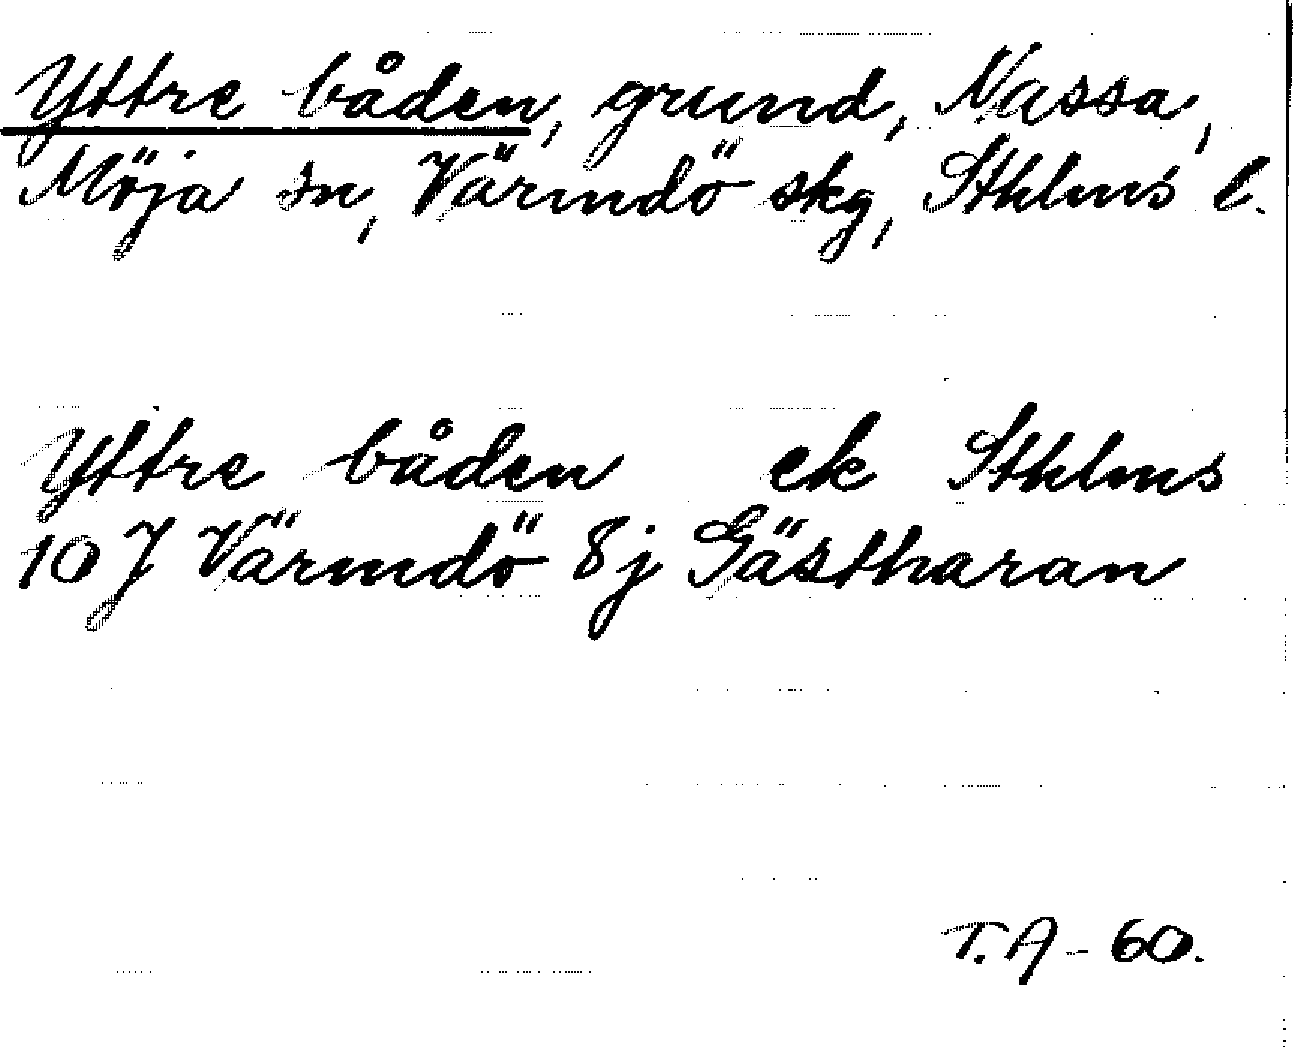 Yttre båden, grund, Nassa,
Möja sn, Värmdö skg, Sthlms l.
Yttre båden ek Sthlms
10 J Värmdö 8j Gästharan
T. A - 60.